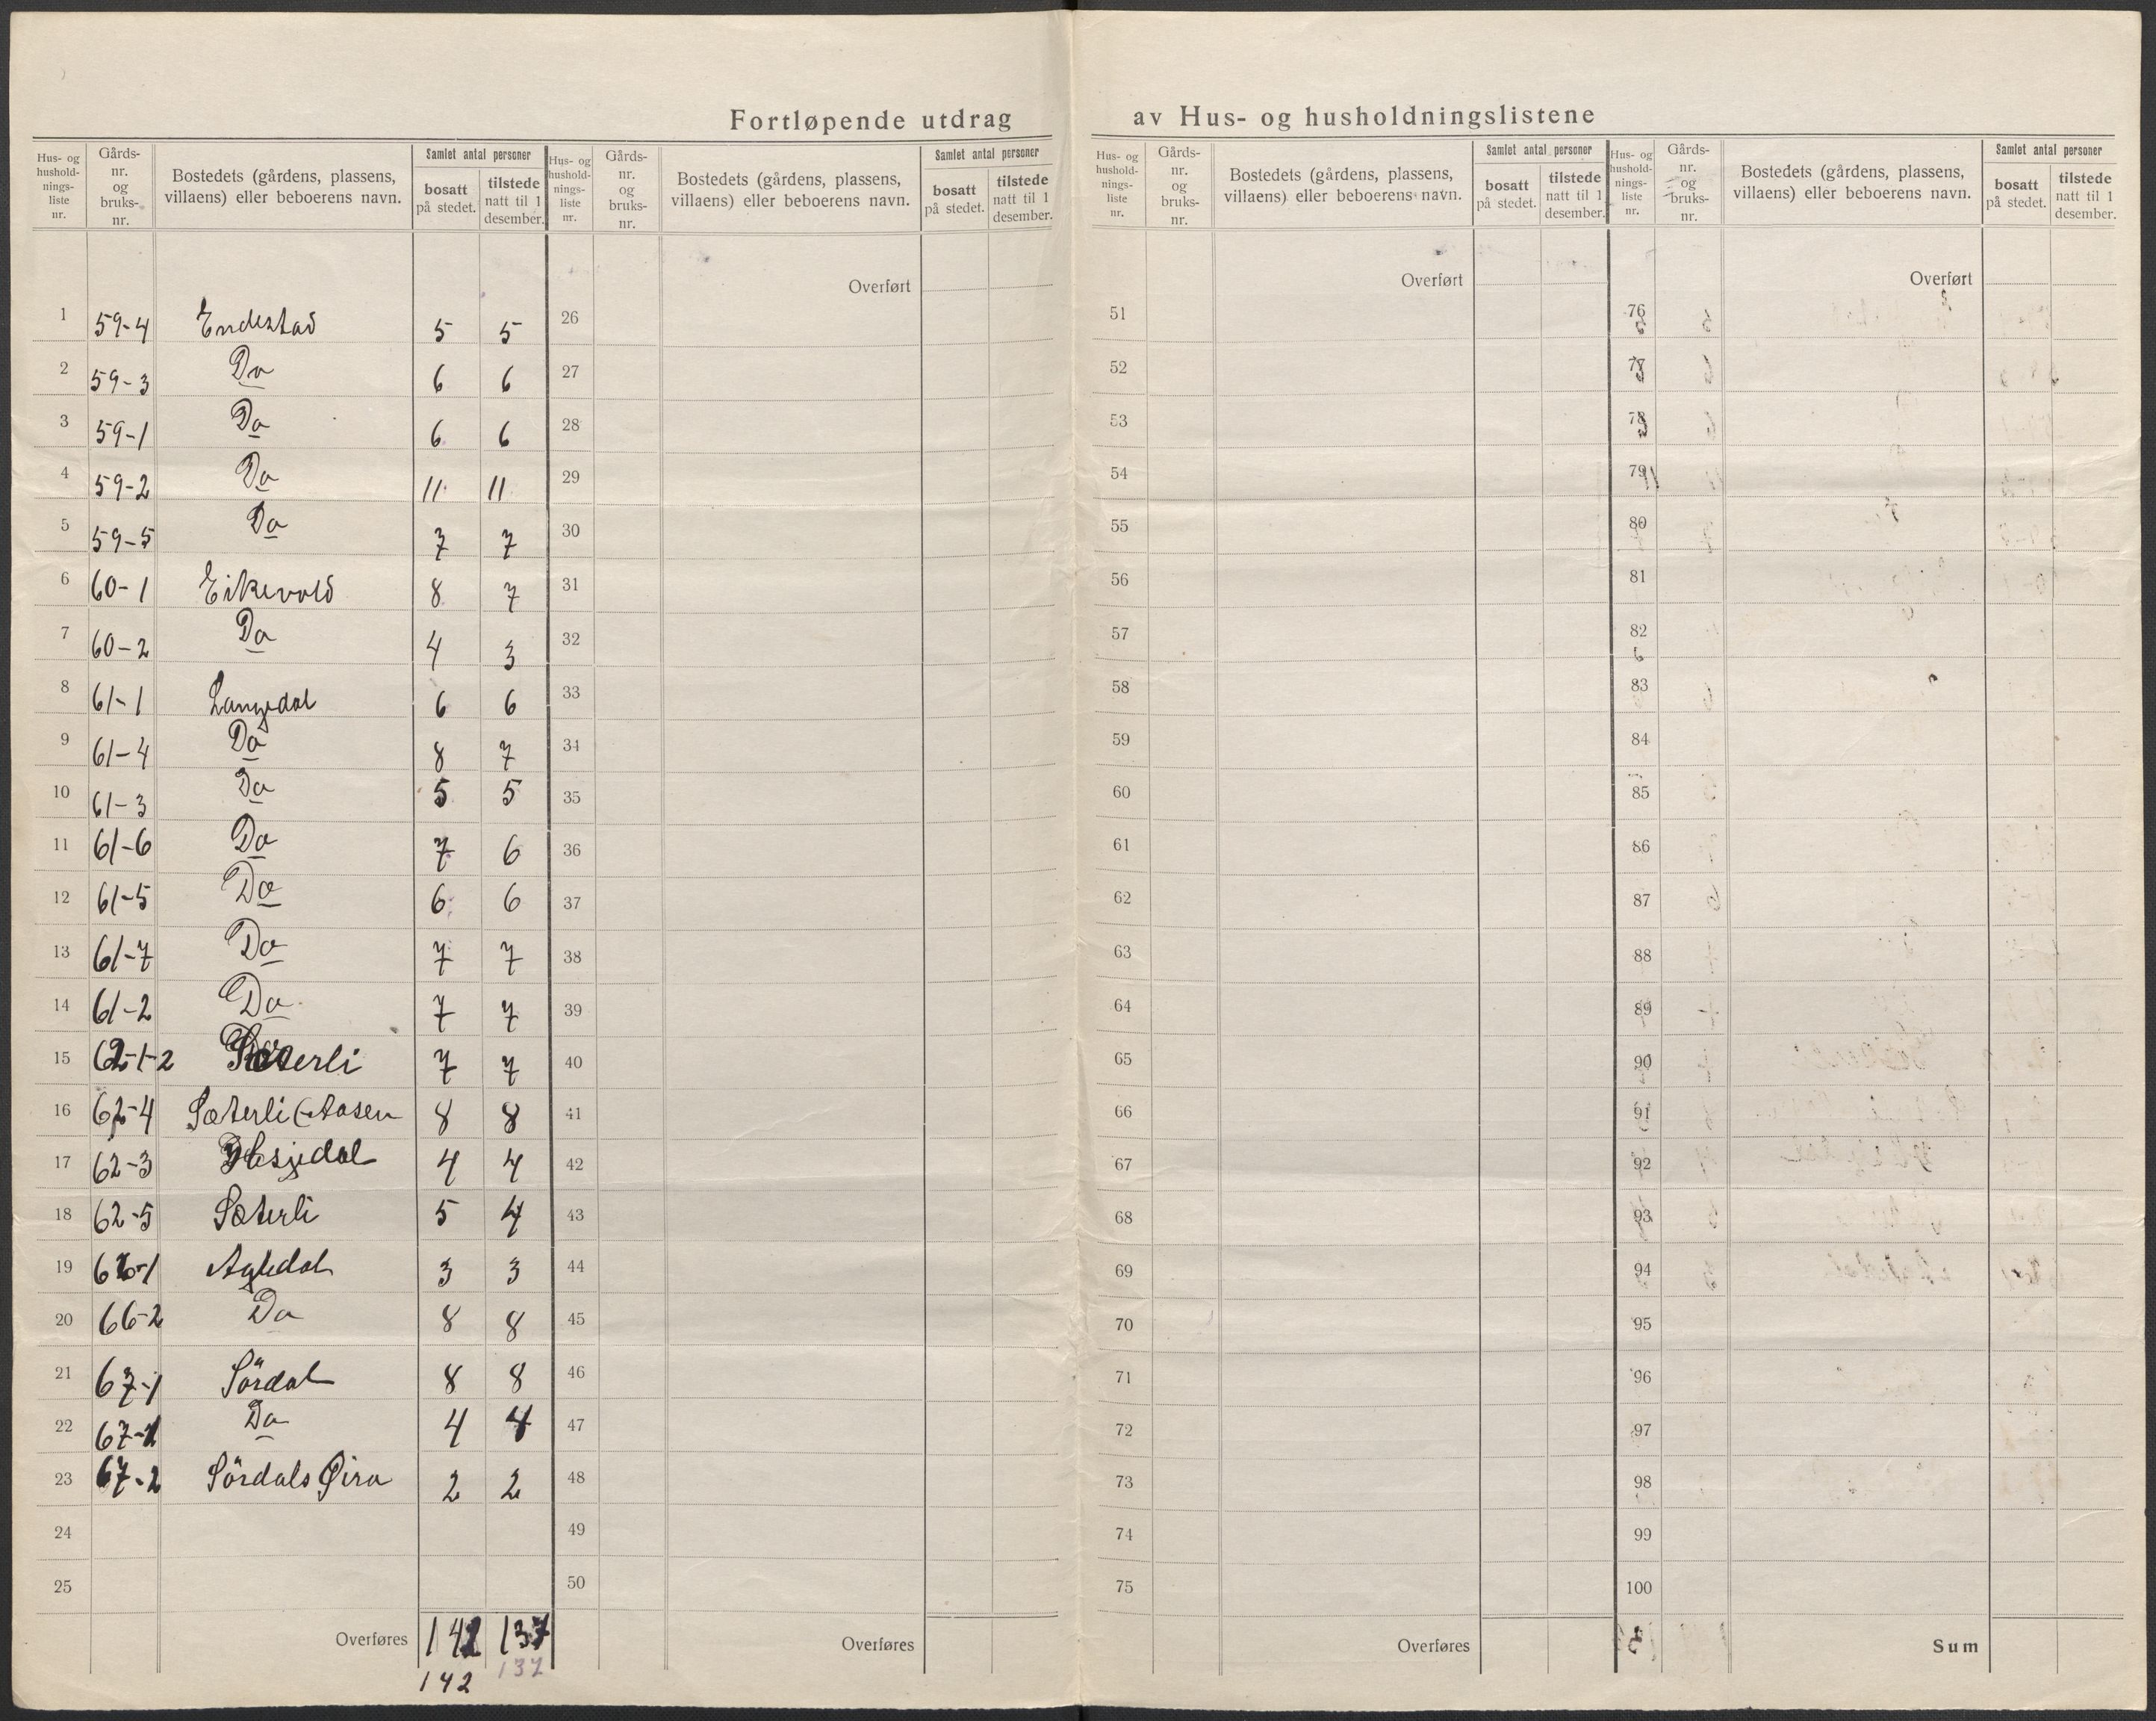 Fortløpende utdrag av Hus- og husholdningslistene
Hus- og husholdnings-liste nr. | Gårds-nr. og bruks-nr. | Bostedets (gårdens, plassens, villaens) eller beboerens navn. | Samlet antal personer | bosatt på stedet. | tilstede natt til 1 desember.
Hus- og hushold-nings-liste nr. | Gårds-nr. og bruks-nr. | Bostedets (gårdens, plassens, villaens) eller beboerens navn. | Samlet antal personer | bosatt på stedet. | tilstede natt til 1 desember.
Hus- og hushold-nings-liste nr. | Gårds-nr. og bruks-nr. | Bostedets (gårdens, plassens, villaens) eller beboerens navn. | Samlet antal personer | bosatt på stedet. | tilstede natt til 1 desember.
Hus- og hushold-nings-liste nr. | Gårds-nr. og bruks-nr. | Bostedets (gårdens, plassens, villaens) eller beboerens navn. | Samlet antal personer | bosatt på stedet. | tilstede natt til 1 desember.
Overført Overført Overført
1 59-4 Endestad 5 5 26 51 76
2 59-3 Do 6 6 27 52 77
3 59-1 Do 6 6 28 53 78
4 59-2 Do 11 11 29 54 79
5 59-5 Do 7 7 30 55 80
6 60-1 Eikevold 8 7 31 56 81
7 60-2 Do 4 3 32 57 82
8 61-1 Langedal 6 6 33 58 83
9 61-4 Do 8 7 34 59 84
10 61-3 Do 5 5 35 60 85
11 61-6 Do 7 6 36 61 86
12 61-5 Do 6 6 37 62 87
13 61-7 Do 7 7 38 63 88
14 61-2 Do 7 7 39 64 89
15 62-1-2 Sæterli 7 7 40 65 90
16 62-4 Sæterli (Aasen 8 8 41 66 91
17 62-3 Hesjedal 4 4 42 67 92
18 62-5 Sæterli 5 4 43 68 93
19 66-1 Agledal 3 3 44 69 94
20 66-2 Do 8 8 45 70 95
21 67-1 Sördal 8 8 46 71 96
22 67-1 Do 4 4 47 72 97
23 67-2 Sördals Øira 2 2 48 73 98
24 49 74 99
25 50 75 100
Overføres 142 137 Overføres Overføres Sum
142 137